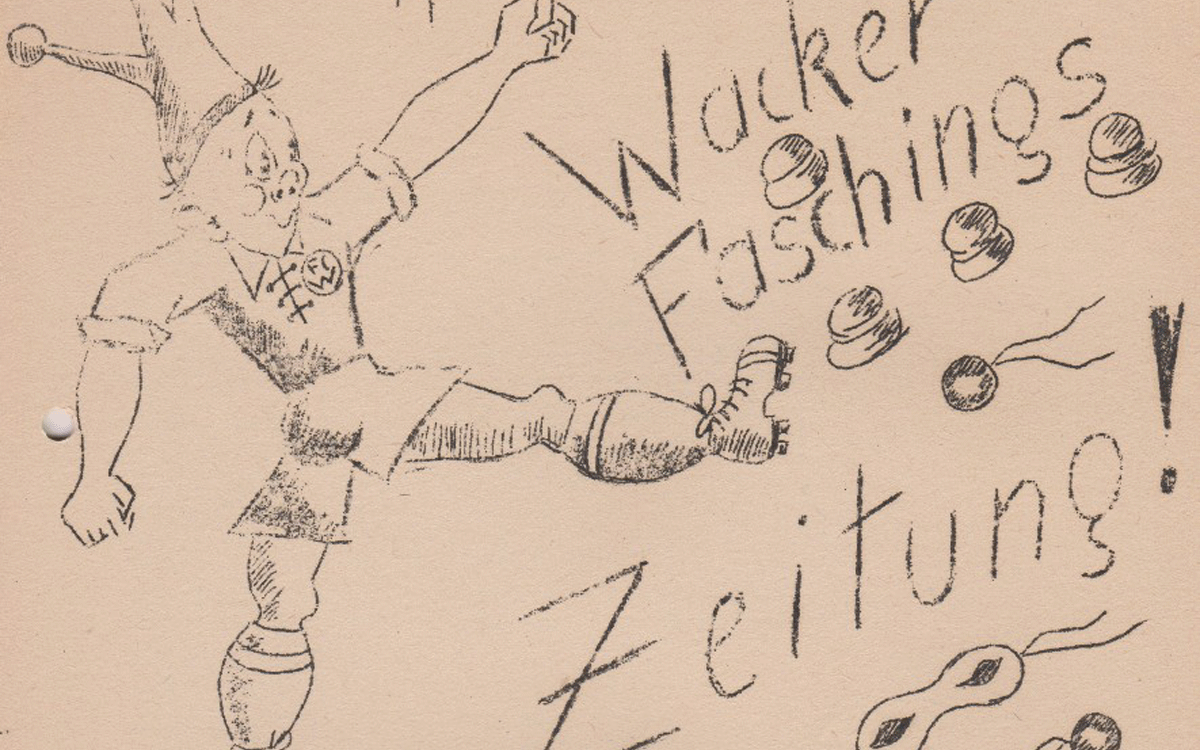 Wacker
Faschings
Zeitung!
FC
W